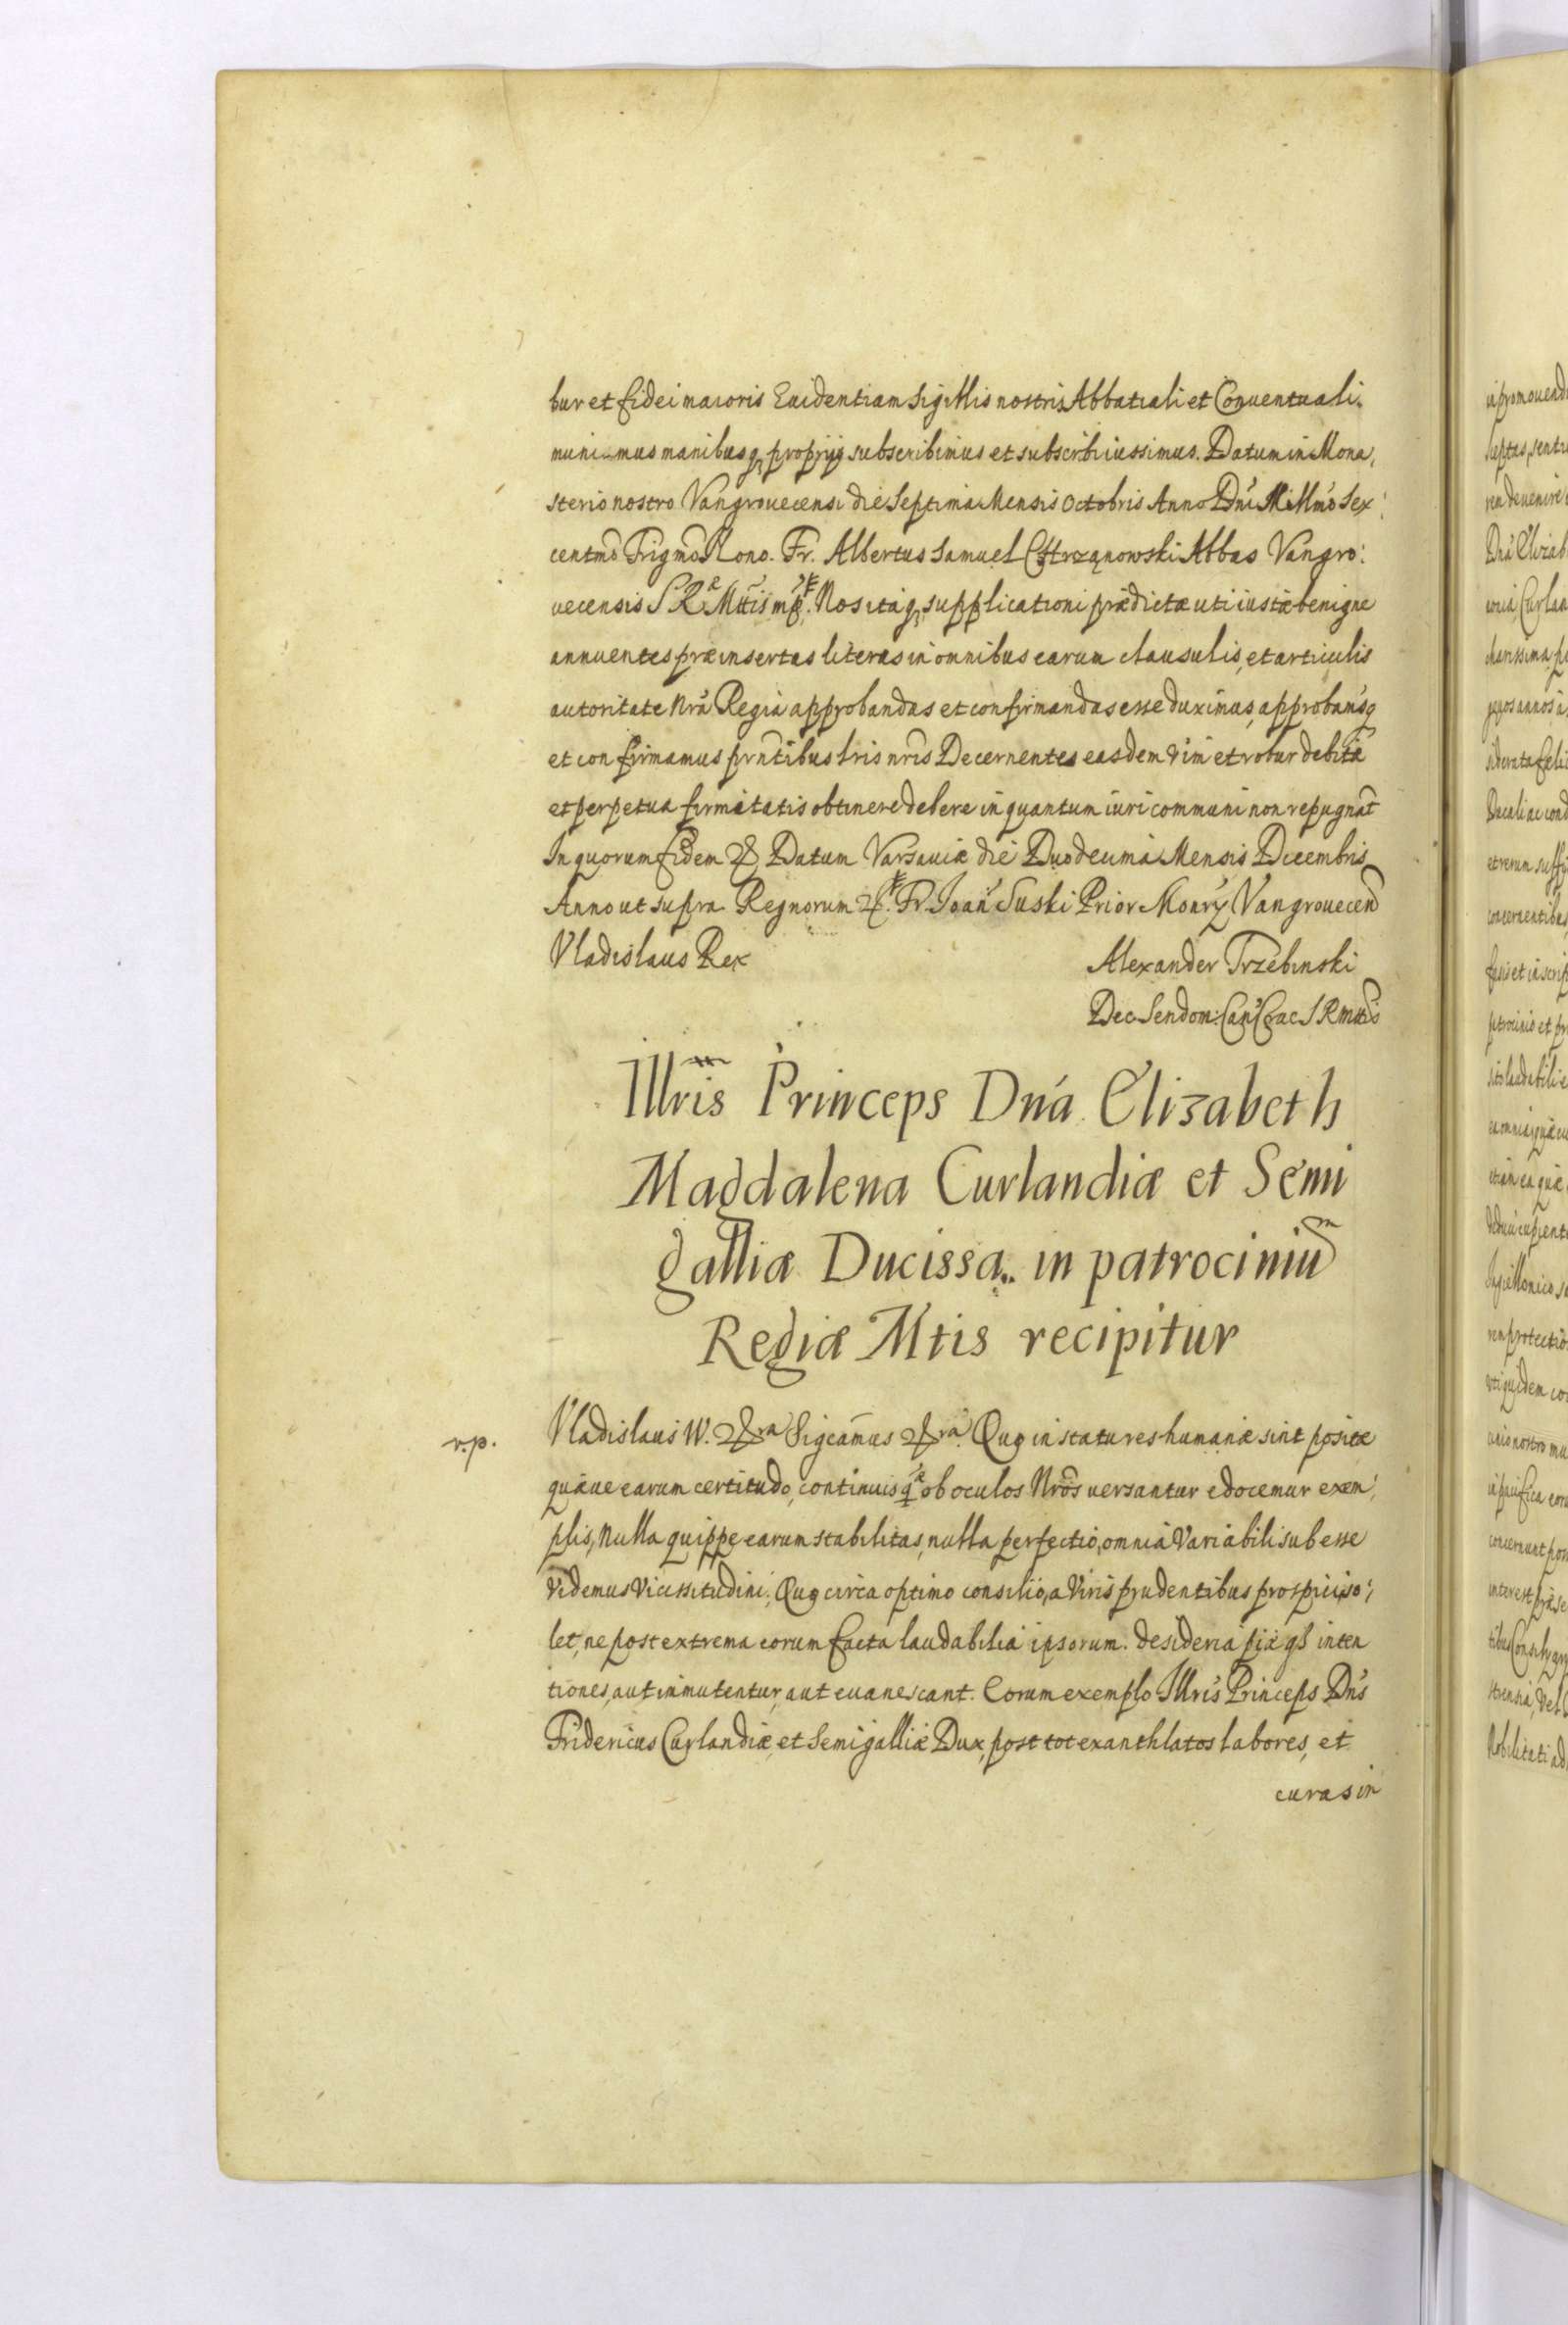 bur et fidei maioris Euidentiam Sigillis nostris Abbatiali et Conuentuali.
muniimus manibusq proprijs subscribimus et subscribi iussimus. Datum in Mona,
sterio nostro Vangrouecensi die Septima Mensis Octobris Anno Dni Millmo Sex:
centmo Trigmo Nono. Fr. Albertus Samuel Chrząnowski Abbas Vangro:
uecensis S R Mttis mp. Nos itaq supplicationi prædictæ uti iustæ benigne
annuentes præinsertas literas in omnibus earum clausulis, et articulis
autoritate Nrã Regia approbandas et confirmandas esse duximus, approbamusq
et confirmamus prntibus lris nris Decernentes easdem vim et robur debitæ
et perpetuæ firmitatis obtinere debere in quantum iuri communi non repugnat
In quorum fidem & Datum Varsauiæ die Duodecima Mensis Decembris
Anno ut supra Regnorum &. Fr. Joan Suski Prior Monry Vangrouecen
Vladislaus Rex
Alexander Trzebinski
Dec Sendom: Can Crac S R Mttis
Illris Princeps Dna Elizabeth
Magdalena Curlandiæ et Semi
galliæ Ducissa in patrociniu
Regiæ Mtis recipitur
r.p.
Vladislaus IV. &ra Sigcamus &ra Quo in statu res humanæ sint positæ
quæue earum certitudo, continuis q ob oculos Nros uersantur edocemur exem,
plis, Nulla quippe earum stabilitas, nulla perfectio, omnia Variabili subesse
videmus Vicissitudini. Quo circa optimo consilio, a Viris prudentibus prospici so,
let, ne post extrema eorum facta laudabilia ipsorum desideria piæq inten
tiones, aut inmutentur, aut euanescant. Eorum exemplo Illris Princeps Dns
Fridericus Curlandiæ, et Semigalliæ Dux, post tot exanthlatos labores, et
curas in